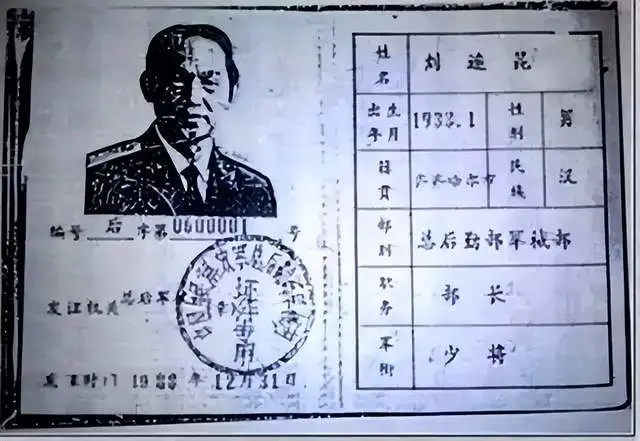 编号 后 字第0600001号
发证机关 总后军
证件专用
发证时间 1988年12月31日
姓名 刘连昆
出生年月 1933.1 性别 男
籍贯 齐齐哈尔市 民族 汉
部别 总后勤部军械部
职务 部长
军衔 少将